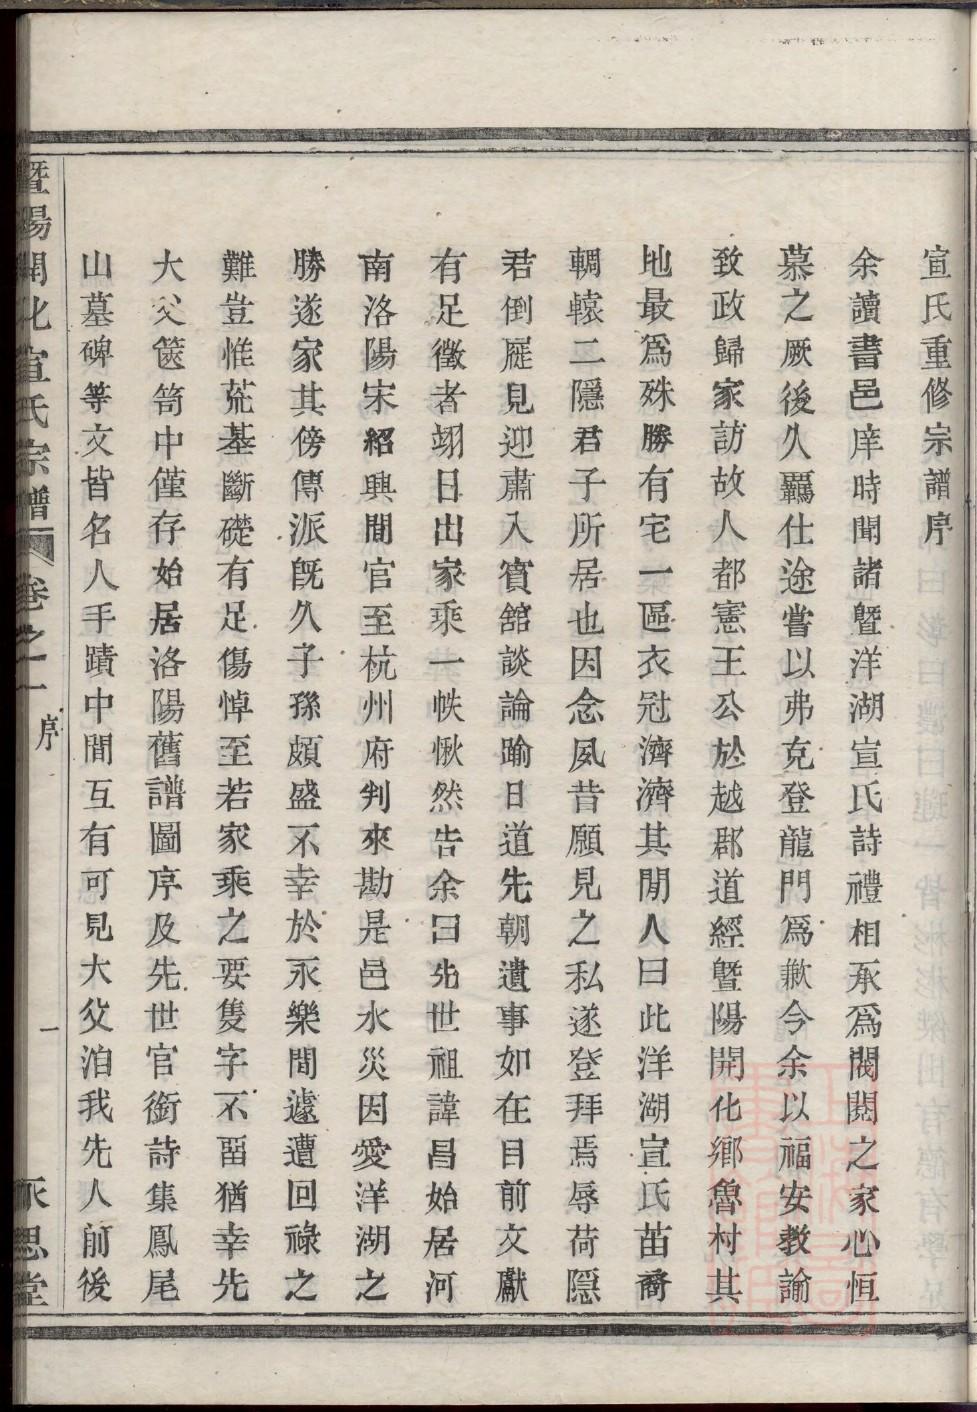 宣氏重修宗譜序
余讀書邑庠時聞諸暨洋湖宣氏詩禮相承爲閥閱之家心恒
慕之厥後久羈仕途嘗以弗克登龍門爲歉今余以福安教諭
致政歸家訪故人都憲王公於越郡道經暨陽開化鄉魯村其
地最爲殊勝有宅一區衣冠濟濟其間人曰此洋湖宣氏苗裔
輞轅二隱君子所居也因念夙昔願見之私遂登拜焉辱荷隱
君倒屣見迎肅入賓舘談論踰日道先朝遺事如在目前文獻
有足徵者翊日出家乘一帙愀然告余曰先世祖諱昌始居河
南洛陽宋紹興間官至杭州府判來勘是邑水災因愛洋湖之
勝遂家其傍傳派既久子孫頗盛不幸於永樂間遽遭回祿之
難豈惟荒基斷礎有足傷悼至若家乘之要隻字不畱猶幸先
大父篋笥中僅存始居洛陽舊譜圖序及先世官銜詩集鳳尾
山墓碑等文皆名人手蹟中間互有可見大父洎我先人前後
暨陽開化宣氏宗譜 卷之一 序 一 永思堂